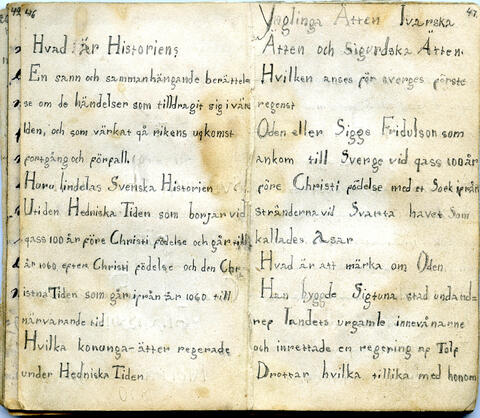 46
Hvad är Historien?
En sann och sammanhängande berättel
se om de händelser som tilldragit sig i värl
lden, och som värkat på rikens upkomst
fortgång och förfall.
Huru indelas Svenska Historien
Uti den Hedniska Tiden som börjar vid
pass 100 år före Christi födelse och går till
år 1060 efter Christi födelse och den Chr
istna Tiden som går ifrån år 1060 till
närvarande tid
Hvilka konunga-ätter regerade
under Hedniska Tiden
47.
Ynglinga Ätten Ivarska
Ätten och Sigurdska Ätten.
Hvilken anses för sverges förste
regent
Oden eller Sigge Fridulson som
ankom till Sverge vid pass 100 år
före Christi födelse med et Folk ifrån
stränderna vid Svarta havet som
kallades Asar
Hvad är att märka om Oden
Han byggde Sigtuna stad undand-
rev landets urgamle innevånarne
och inrettade en regering av Tolv
Drottar hvilka tillika med honom